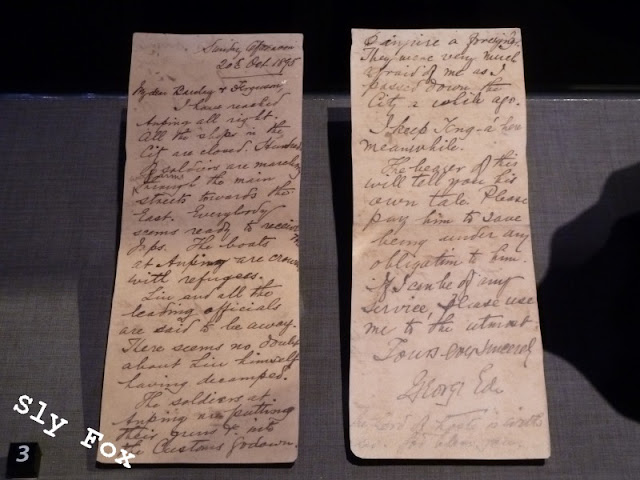 Sunday Afternoon
20th Oct. 1895
My dear Barclay & Ferguson,
I have reached
Anping all right.
All the shops in the
City are closed. Hundreds
of soldiers are marching
through the main
streets towards the
East. Everybody
seems ready to receive
Jps. The boats
at Anping are crowded
with refugees.
Liu and all the
leading officials
are said to be away.
There seems no doubt
about Liu himself
having decamped.
The soldiers at
Anping are putting
their guns &c into
the Customs Godown.
a foreigner.
They were very much
afraid of me as I
passed down the
City a while ago.
I keep Kng-á here
meanwhile.
The bearer of this
will tell you his
own tale. Please
pay him to save
being under any
obligation to him.
If I can be of any
service, please use
me to the utmost.
Yours Ever Sincerely
George Ede
3
Sly Fox